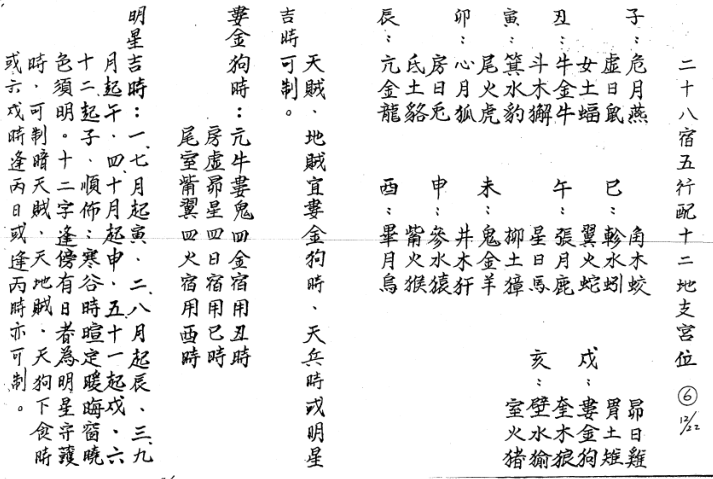 二十八宿五行配十二地支宮位 ⑥ 12/22
子：危月燕
虛日鼠
女土蝠
丑：牛金牛
斗木獬
寅：箕水豹
尾火虎
卯：心月狐
房日兎
氐土貉
辰：亢金龍
角木蛟
巳：軫水蚓
翼火蛇
午：張月鹿
星日馬
柳土獐
未：鬼金羊
井木犴
申：參水猿
觜火猴
酉：畢月烏
昴日雞
胃土雉
戌：婁金狗
奎木狼
亥：壁水㺄
室火猪
天賊、地賊宜婁金狗時、天兵時或明星
吉時可制。
婁金狗時：亢牛婁鬼四金宿用丑時
房虛昴星四日宿用巳時
尾室觜翼四火宿用酉時
明星吉時：一、七月起寅、二、八月起辰、三、九
月起午、四、十月起申、五、十一起戌、六
十二起子、順佈：寒谷時暄定暖晦窗曉
色須明。十二字逢傍有日者為明星守護
時，可制暗天賊、天地賊、天狗下食時
或六戊時逢丙日或逢丙時亦可制。